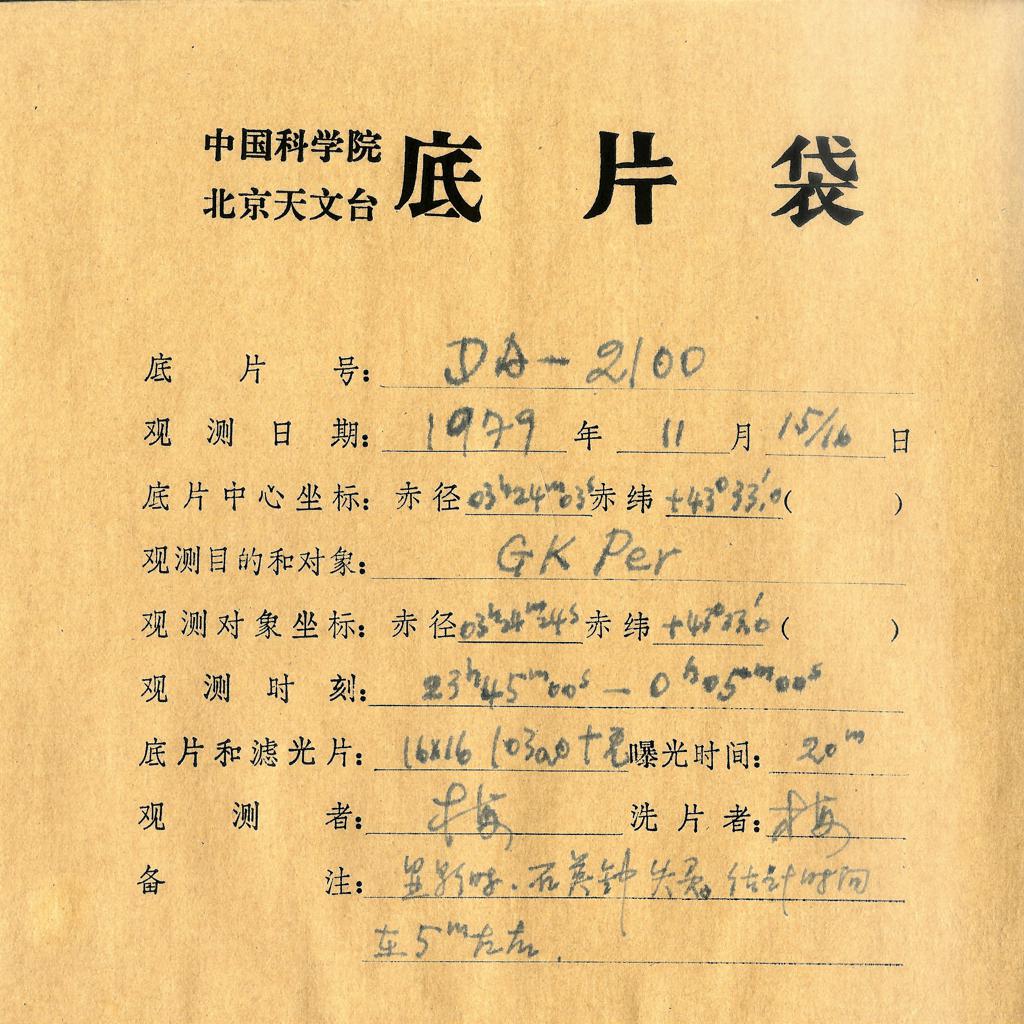 中国科学院
北京天文台
底片袋
底片号: DA-2100
观测日期: 1979年 11月 15/16日
底片中心坐标: 赤径 03h24m03s 赤纬 +43°33′.0 ( )
观测目的和对象: GK Per
观测对象坐标: 赤径 03h24m24s 赤纬 +43°33′.0 ( )
观测时刻: 23h45m00s — 0h05m00s
底片和滤光片: 16x16 103aO+ 曝光时间: 20m
观测者: 梅 洗片者: 梅
备注: 显影时.石英钟失灵。估计时间
在5m左右.